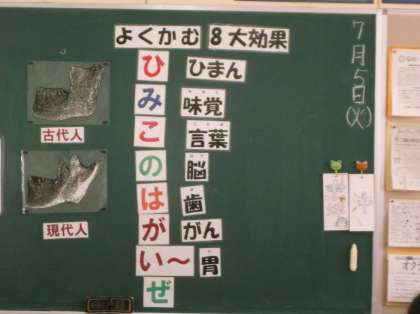 よくかむ 8大効果
ひ ひまん
み 味覚
こ 言葉
の 脳
は 歯
が がん
い～ 胃
ぜ
古代人
現代人
7月5日(火)